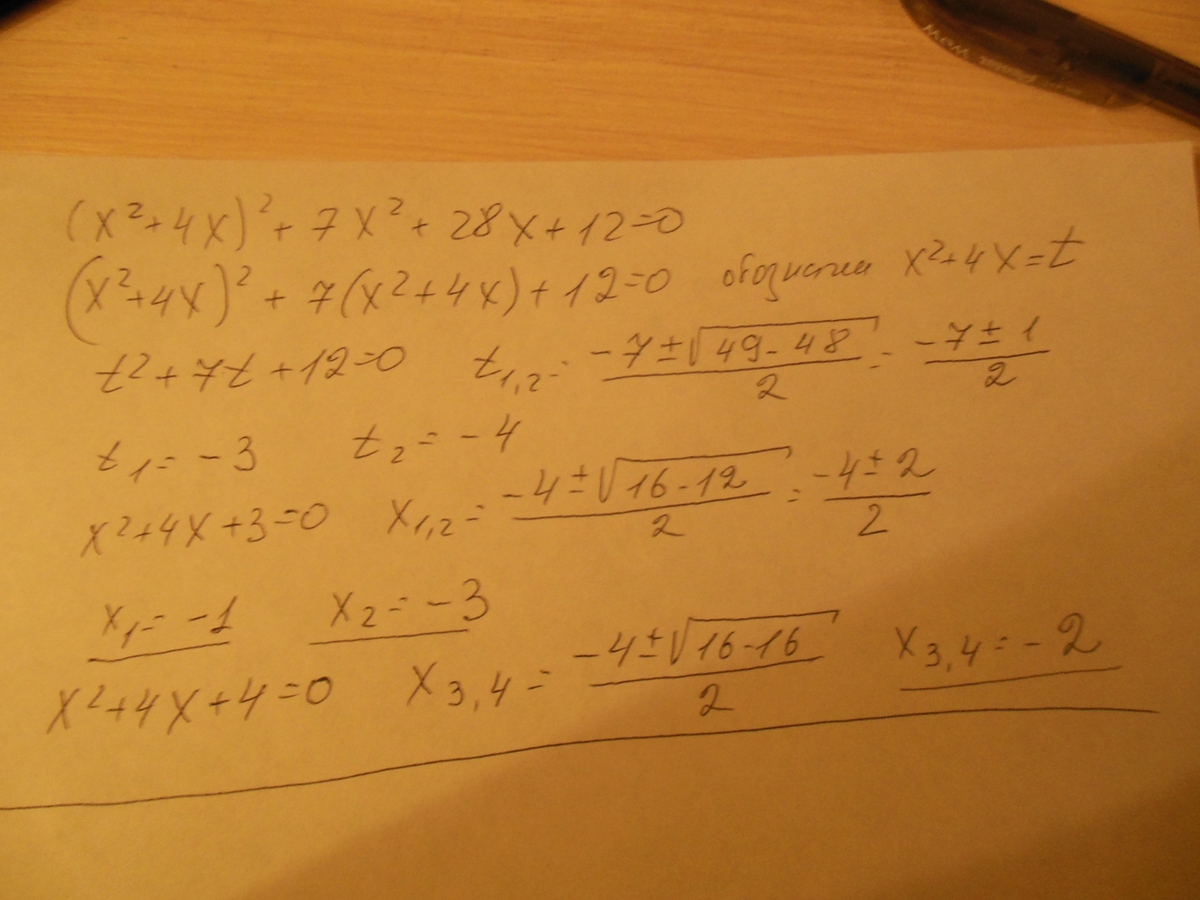 (x²+4x)²+7x²+28x+12=0
(x²+4x)²+7(x²+4x)+12=0 обозначим x²+4x=t
t²+7t+12=0 t₁,₂=(-7±√(49-48))/2=(-7±1)/2
t₁=-3 t₂=-4
x²+4x+3=0 x₁,₂=(-4±√(16-12))/2=(-4±2)/2
x₁=-1 x₂=-3
x²+4x+4=0 x₃,₄=(-4±√(16-16))/2 x₃,₄=-2